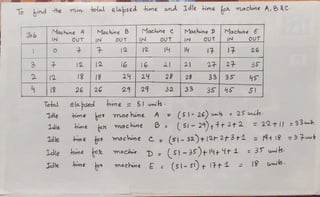 To find the min total elapsed time and Idle time for machine A, B & C.
Job Machine A Machine B Machine C Machine D Machine E
IN OUT IN OUT IN OUT IN OUT IN OUT
1 0 7 7 12 12 14 14 17 17 26
3 7 12 12 16 16 21 21 27 27 35
2 12 18 18 24 24 28 28 33 35 45
4 18 26 26 29 29 32 33 35 45 51
Total elapsed time = 51 units.
Idle time for machine A = (51-26) units = 25 units
Idle time for machine B = (51-29)+7+2+2 = 22+11 = 33 units
Idle time for machine C = (51-32)+12+2+3+1 = 19+18 = 37 units
Idle time for machine D = (51-35)+14+4+1 = 35 units
Idle time for machine E = (51-51)+17+1 = 18 units.